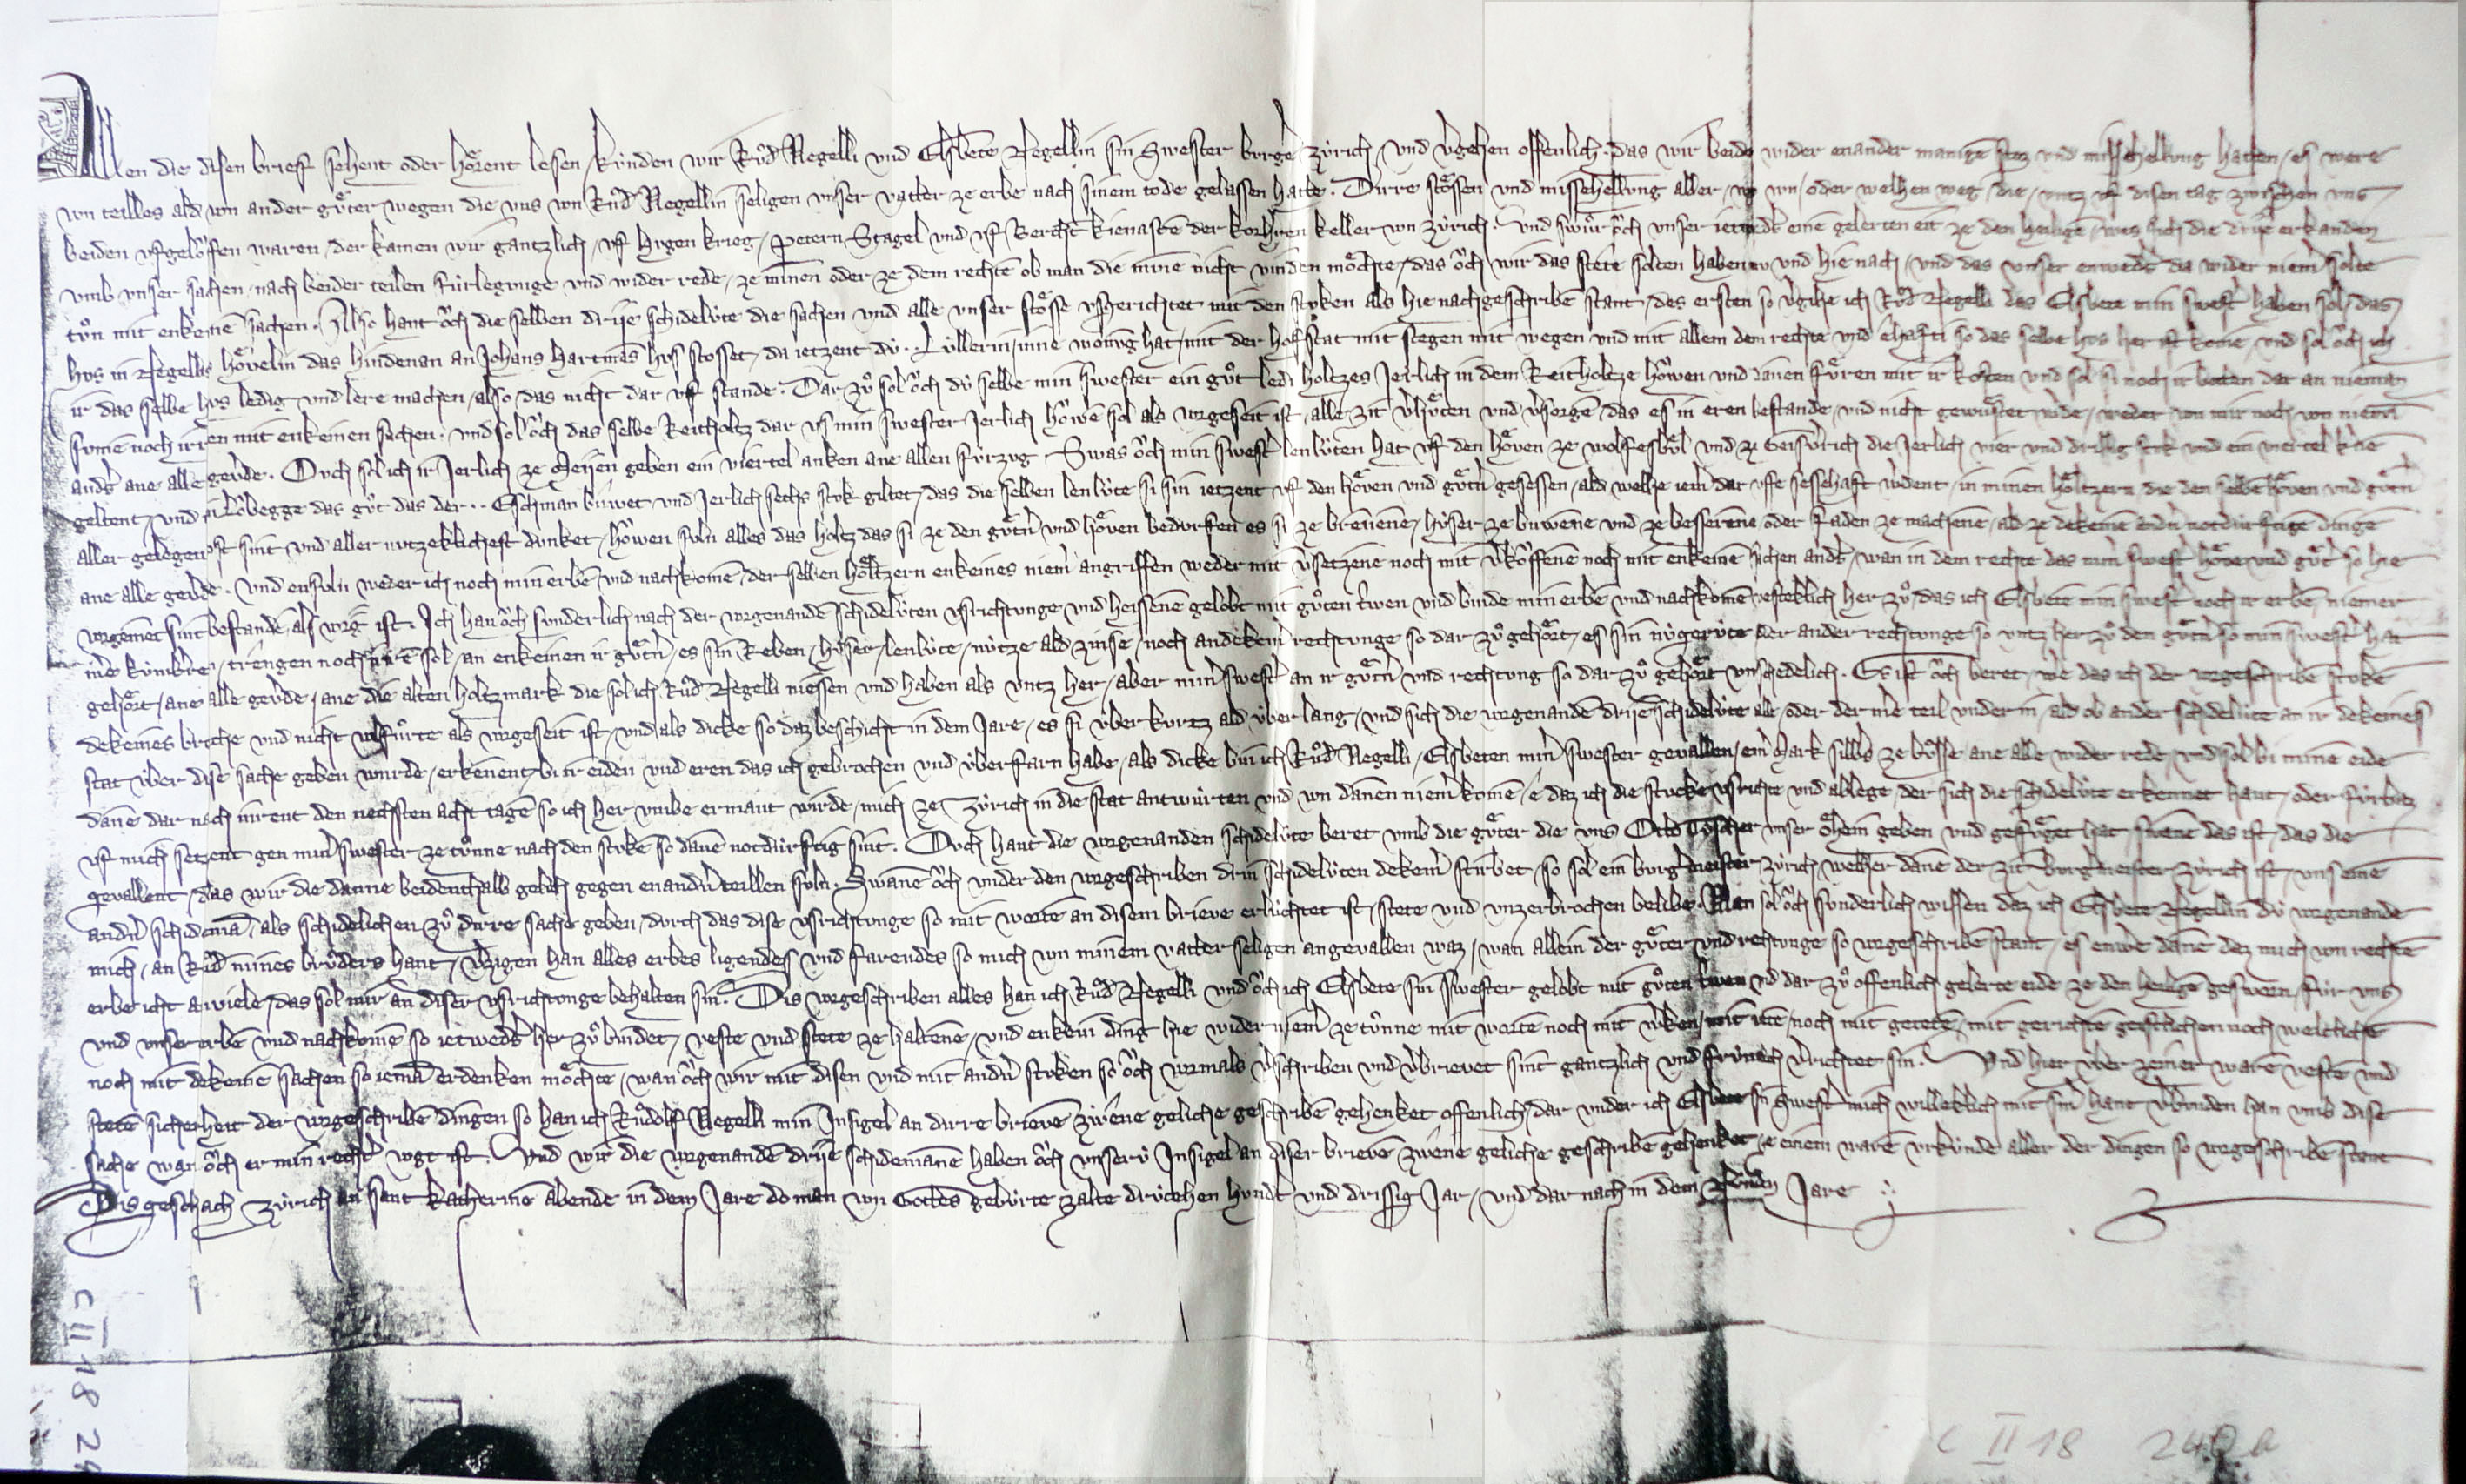 Allen die disen brieff sehent oder hoͤrent lesen / kunden wir Ruͦd Negelli und Elsbete Negellin sin Swester burgˀe zurich und vˀgehen offenlich das wir beide wider enander manigē stoz und missehellung hatten / es were
von teilles ald von ander guͤter wegen die uns von Ruͦd Negellin seligen unser vatter ze erbe nach sinem tode gelassen hatte . Dirre stoͤssen und missehellung aller / von / oder welhen weg die / untz uf disen tag zwischen uns
beiden ufgeloͮfen waren / der kamen wir gantzlich / uf hugen krieg / Petern Stagel und uf Berchtˀ kienastē der korhˀren keller von Zurich . und swuͦr oͮch unser ietwedˀ einē gelerten eit ze den heiligē / wes sich die drije erkanden
umb unser sachen / nach beider teilen furlegunge und wider rede / ze minen oder ze dem rechtē ob man die minne nicht vinden moͤchte / das oͮch wir das stete solten haben nu und hie nach / und das unser enwedˀ da wider niemˀ solte
tuͦn mit enkeinē sachen . Also hant oͮch die selben drije schidelute die sachen und alle unser stoͤsse usgerichtet mit den stuken als hie nach geschribē stant / des ersten so vˀgihe ich Ruͦd Negelli das Elsbete min swestˀ haben sol / das
hus in Negellis hoͤvelin das hindenan an Johans Hartmēs hus stosset / da ietzent du .. Lullerin / inne wonung hat / mit der hofstat mit stegen mit wegen und mit allem dem rechte und ehafti so das selbe hus her ist komē / und sol oͮch ich
ir das selbe hus ledig und lere machen / also das nicht dar uf stande . Dar zuͦ sol oͮch du selbe min swester ein guͦt ledi holtzes Jerlich in dem Reitholtze hoͮwen und danen fuͤren mit ir kosten und sol si noch ir botten dar an nieman
sumē noch irren mit enkeinen sachen . und sol oͮch das selbe Reitholtz dar us min swester Jerlich hoͮwē sol als vorgeseit ist / alle zit vˀhuͤten und vˀsorgē / das es in eren bestande / und nicht gewuͤstet wˀde / weder von mir noch von niemā
andˀ ane alle gevˀde . Ouch sol ich ir Jerlich ze Meijen geben ein viertel anken ane allen furzug . Swas oͮch min swestˀ lenluten hat uf den hoͤven ze wolfesbuͦl und ze die Jerlich vier und drissig stuk und ein viertel
geltent / und das guͦt das der .. Eschman buwet und Jerlich sechs stuk giltet / das die selben lenlute si sin ietzent uf den hoͤven und guͤtˀn gesessen / ald welhe iemˀ dar uffe sesshaft wˀdent / in minen hoͤltzern die den selbē hoͤven und guͤtˀn
aller gelegenost sint und aller nutzeklichest dunket / hoͮwen suln alles das holtz das si ze den guͤtˀn und hoͤven bedurfen es si ze brenēne / huser ze buwēne und ze besserēne / oder faden ze machenē / ald ze dekeinē andˀn notdurftigē dinge
ane alle gevˀde . und ensuln weder ich noch min erbē und nachkomē / der selben hoͤltzern enkeines niemˀ angriffen weder mit vˀsetzēne noch mit vˀkoͮffenē noch mit enkeinē sachen andˀ / wan in dem rechte das minˀ swestˀ hoͤve und guͤtˀ so hie
vorgenēt sint bestandē als vorgˀ ist . Ich han oͮch sunderlich nach der vorgenandē schideluten usrichtunge und heissenē gelobt mit guͦten truwen und binde min erbē und nachkomē vesteklich her zuͦ / das ich Elsbetē min swestˀ noch ir erbē niemer
kumbˀen / trengen noch sol / an enkeinen ir guͤtˀn / es sin Reben / huser / lenlute / nutze ald zinse / noch an dekeinˀ rechtunge so dar zuͦ gehoͤrt / es sin nugerute oder ander rechtunge so untz her zuͦ den guͤtˀn so min swestˀ hat
gehoͤrt / ane alle gevˀde / ane die alten holtzmark die sol ich Ruͦd Negelli niessen und haben als untz her / aber minˀ swestˀ an ir guͤtˀn und rechtung so dar zuͦ gehoͤrt unschedelich . Es ist oͮch beret / wˀe das ich der vorgeschribē stuke
dekeines breche und nicht volfuͦrte als vorgeseit ist / und als dicke so daz beschicht in dem Jare / es si uber kurtz ald uber lang / und sich die vorgenandē drije schidelute alle / oder der mˀe teil under in / ald ob ander schidelute an ir dekeines
stat uber dise sache geben wurde / erkenent / bi ir eiden und eren das ich gebrochen und uberfarn habe / als dicke bin ich Ruͦd Negelli / Elsbeten minˀ swester gevallen / ein Mark silbˀs ze buͦsse ane alle wider rede / und sol bi minē eide
danē dar nach inrent den nechsten acht tagē so ich her umbe ermant wirde / mich ze Zurich in die stat antwurten und von dannen niemˀ komē / e daz ich die stucke usrichte und ablege / der sich die schidelute erkennet hant / oder furbaz
uf mich setzent gen minˀ swester ze tuͦnne nach den stukē so danē notdurftig sint . Ouch hant die vorgenanden schidelute beret umb die guͤter die uns Otto Toscher unser oͤhem geben und gefuͤget hat swēne das ist / das die
gevallent / das wir die danne beidenthalb gelich gegen enandˀn teillen suln . Swanē oͮch under den vorgeschriben drin schideluten dekeinˀ stirbet / so sol ein burgˀmeister zurich / welher danē der zit burgˀmeister zurich ist / uns einē
andˀn schidemā / als schidelichen zuͦ dirre sache geben / durch das dise usrichtunge so mit wortē an disem brieve erluchtet ist / stete und unzerbrochen belibe . Man sol oͮch sunderlich wissen daz ich Elsbete Negellin du vorgenande
mich / an Ruͦd mines bruͦders hant / vˀzigen han alles erbes ligendes und farendes so mich von minem vatter seligen angevallen waz / wan allein der guͤter und rechtunge so vorgeschribē stant / es enwˀe danē dez mich von rechtē
erbe icht / das sol mir an diser usrichtunge behalten sin . Dis vorgeschriben alles han ich Ruͦd Negelli und oͮch ich Elsbete sin swester gelobt mit guͦten truwen und dar zuͦ offenlich gelerte eide ze den heiligē geswˀorn / fur uns
und unser erbē und nachkomē so ietwedˀ her zuͦ bindet / veste und stete ze haltenē / und enkein ding hie wider niemˀ ze tuͦnne mit wortē noch mit wˀken / mit retē / noch mit getetē / mit gerichtē geistlichen noch weltlichē
noch mit dekeinē sachen so iemā erdenken moͤchte / wan oͮch wir mit disen und mit andˀn stuken so oͮch vormals vˀschriben und vˀbrievet sint gantzlich und fruntlich vˀrichtet sin . Und hier uber ze einer warē vestē und
stetē sicherheit der vorgeschribē dingen so han ich Ruͦdolf Negelli min Insigel an dirre brievē zwēne geliche geschribē gehenket offenlich / dar under ich Elsbete sin Swestˀ mich willeklich mit sinˀ hant vˀbunden han umb dise
sache wan oͮch er min rechtˀ vogt ist . Und wir die vorgenandē drije schidemanē haben oͮch unseru Insigel an diser brievē zwēne geliche geschribē gehenket / ze einem warē urkunde aller der dingen so vorgeschribē stant
Dis geschach Zurich an sant katherinē abende in dem Jare do man von Gottes geburte zalte drutzehen hundˀt und drissig Jar / und dar nach in dem Jare
C II 18 24
C II 18 240 a